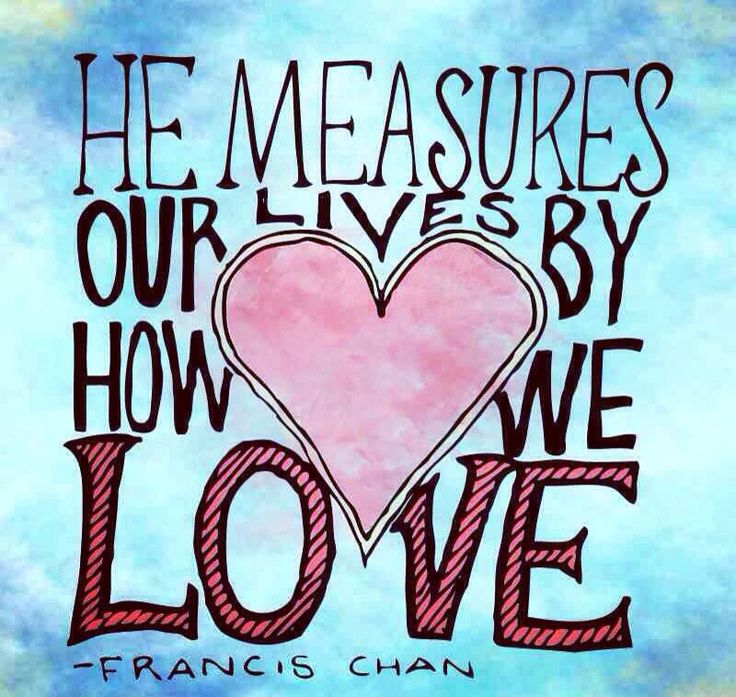 HE MEASURES
OUR LIVES BY
HOW WE
LOVE
-FRANCIS CHAN